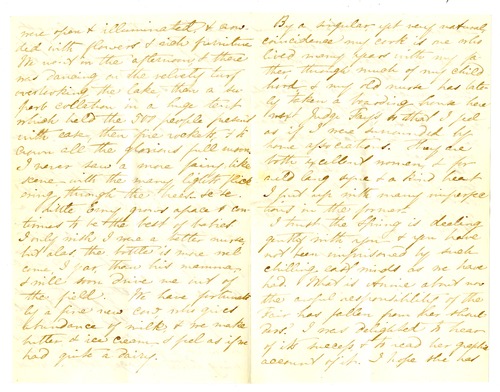 were open & illuminated, & crow
ded with flowers & side furniture
We went in the afternoon, & there
was dancing on the velvety turf
overlooking the lake, then a su
perb collation in a huge tent
which held the 500 people present
with ease, then fire rockets, & to
crown all the glorious full moon.
I never saw a more fairy like
scene with the many lights flick
ering through the trees &c &c.
Little Emy grows apace & con
tinues to be the best of babies
I only wish I was a better nurse
but alas, the bottle is more wel
come, I fear, than his mamma,
& will soon drive me out of
the field. We have fortunate
ly a fine new cow, who gives
abundance of milk & we make
butter & ice cream & feel as if we
had quite a dairy.
By a singular yet very natural
coincidence my cook is one who
lived many years with my fa
ther, through much of my child
hood, & my old nurse has late
ly taken a boarding house here
Judge so that I feel
as if I were surrounded by
home associations. They are
both excellent women, & for
auld lang syne & a kind heart
I put up with many imperfec
tions in the former.
I trust the Spring is dealing
gently with you & you have
not been imprisoned by such
chilling east winds as we have
had. What is Annie about now
the awful responsibility of the
Fair has fallen from her shoul
ders. I was delighted to hear
of its success & to read her graphic
account of it. I hope she has